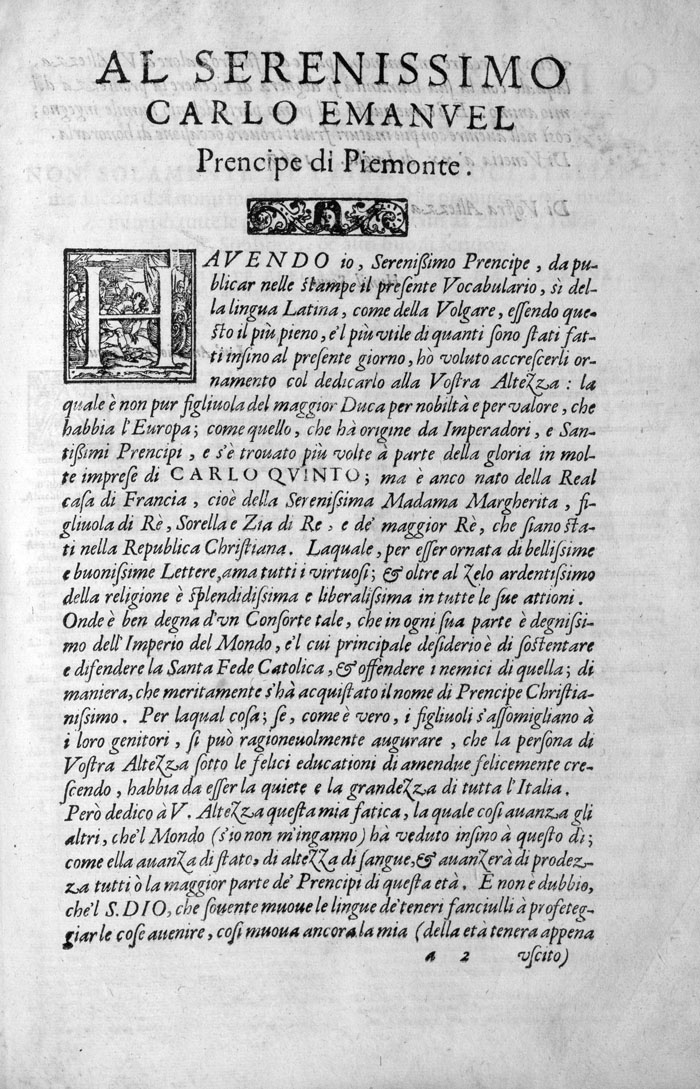 AL SERENISSIMO
CARLO EMANVEL
Prencipe di Piemonte.
HAVENDO io, Sereniſſimo Prencipe, da pu-
blicar nelle ſtampe il preſente Vocabulario, sì del-
la lingua Latina, come della Volgare, eſſendo que-
ſto il più pieno, e'l più vtile di quanti ſono ſtati fat-
ti inſino al preſente giorno, hò voluto accreſcerli or-
namento col dedicarlo alla Vostra Altezza: la
quale è non pur figliuola del maggior Duca per nobiltà e per valore, che
habbia l'Europa; come quello, che hà origine da Imperadori, e San-
tiſſimi Prencipi, e s'è trouato più volte à parte della gloria in mol-
te impreſe di CARLO QVINTO; ma è anco nato della Real
caſa di Francia, cioè della Sereniſſima Madama Margherita, fi-
gliuola di Rè, Sorella e Zia di Re, e de' maggior Rè, che ſiano ſta-
ti nella Republica Chriſtiana. Laquale, per eſſer ornata di belliſſime
e buoniſſime Lettere, ama tutti i virtuoſi; & oltre al zelo ardentiſſimo
della religione è ſplendidiſſima e liberaliſſima in tutte le ſue attioni.
Onde è ben degna d'vn Conſorte tale, che in ogni ſua parte è degniſſi-
mo dell'Imperio del Mondo, e'l cui principale deſiderio è di ſoſtentare
e difendere la Santa Fede Catolica, & offendere i nemici di quella; di
maniera, che meritamente s'hà acquiſtato il nome di Prencipe Chriſtia-
niſſimo. Per laqual coſa; ſe, come è vero, i figliuoli s'aſſomigliano à
i loro genitori, ſi può ragioneuolmente augurare, che la perſona di
Vostra Altezza ſotto le felici educationi di amendue felicemente cre-
ſcendo, habbia da eſſer la quiete e la grandezza di tutta l'Italia.
Però dedico à V. Altezza questa mia fatica, la quale coſi auanza gli
altri, che'l Mondo (s'io non m'inganno) hà veduto inſino à questo dì;
come ella auanza di stato, di altezza di ſangue, & auanzerà di prodez-
za tutti ò la maggior parte de' Prencipi di questa età. E non è dubbio,
che'l S. DIO, che ſouente muoue le lingue de' teneri fanciulli à profeteg-
giar le coſe auenire, coſi muoua ancora la mia (della età tenera appena
a 2 vſcito)